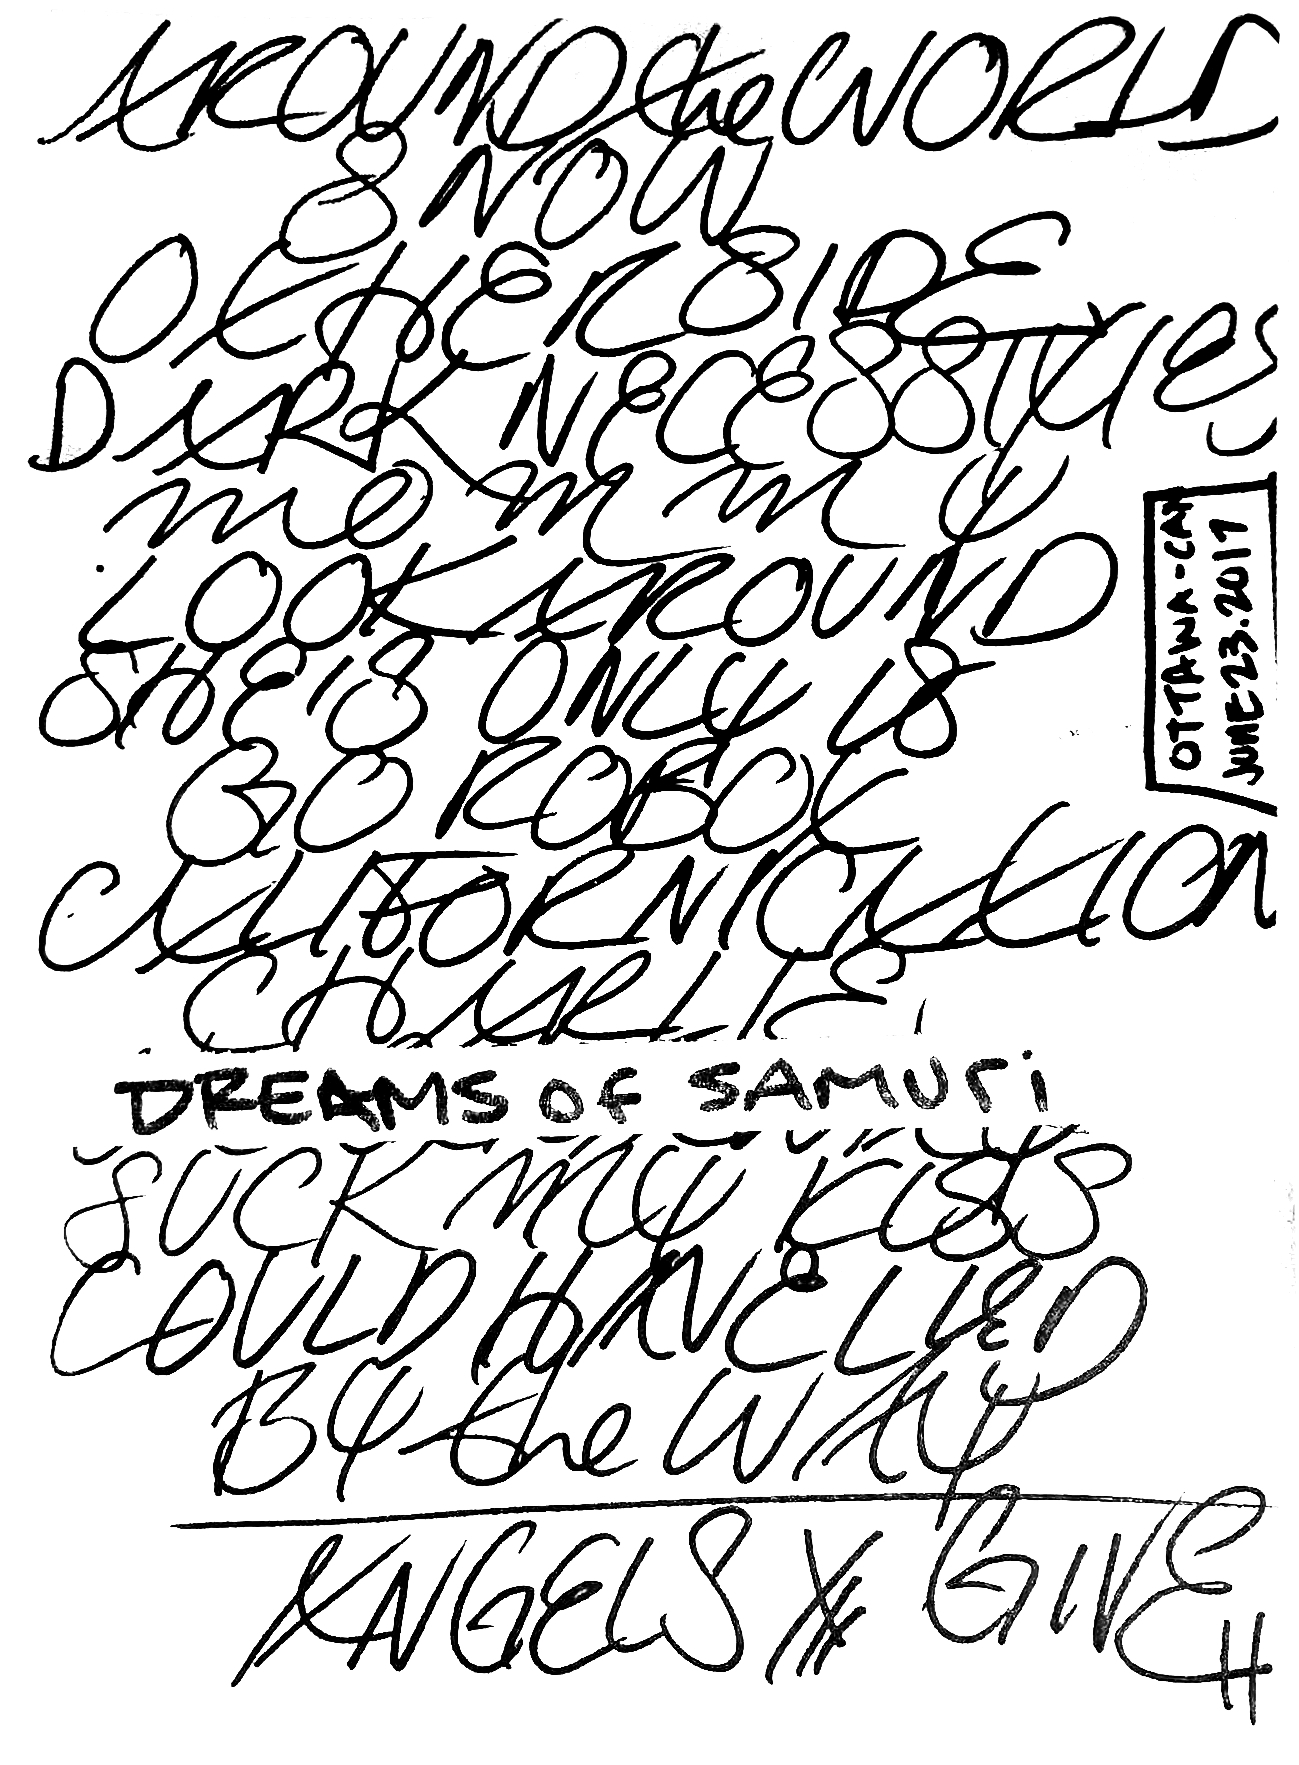 AROUND the WORLD
SNOW
OTHERSIDE
DARK NECESSITIES
mommy
LOOK AROUND
SHE'S ONLY 18
GO ROBOT
CALIFORNICATION
CHARLIE
DREAMS OF SAMURi
SUCK MY KISS
COULD HAVE LIED
BY the WAY
ANGELS
GIVE
OTTAWA-CAN
JUNE 23.2017